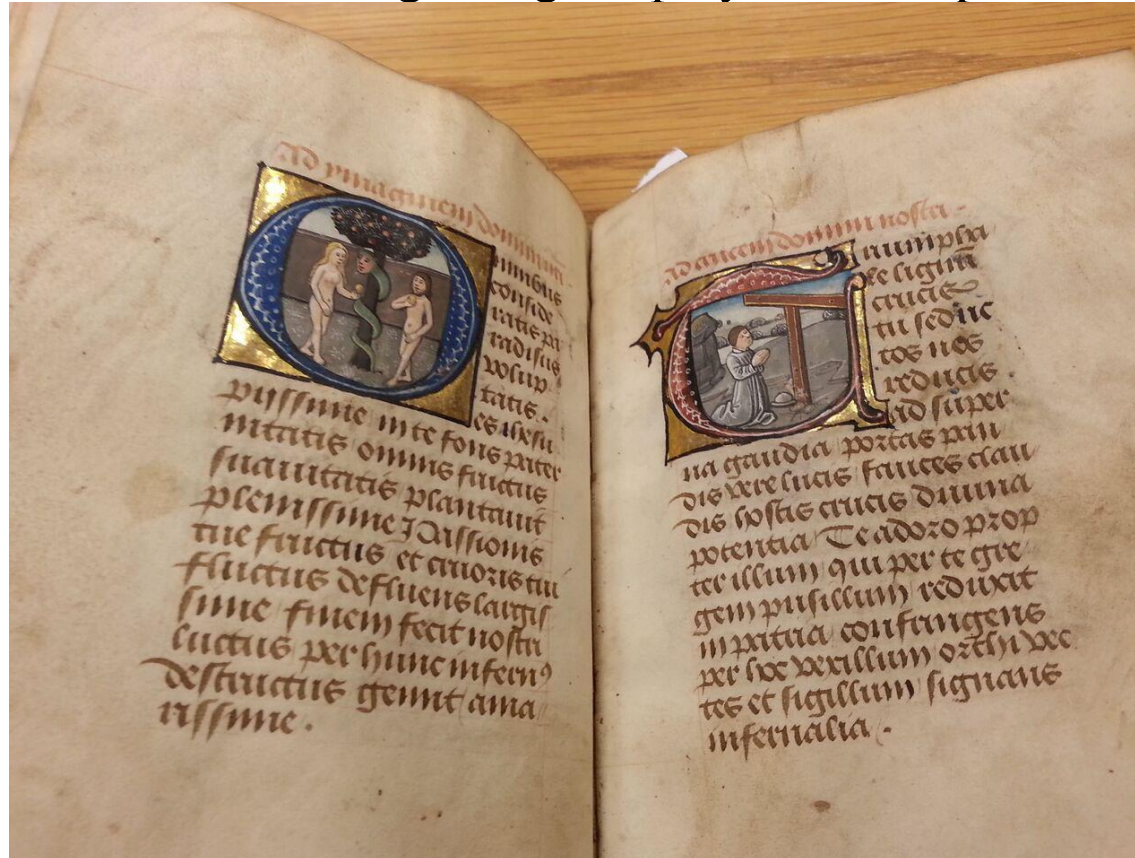 ad ymaginem domini
Omnibus
conside
ratis pa
radisus
volup
tatis.
es ihesu
pijssime in te fons pater
nitatis omnis fructus
suauitatis plantauit
plenissime Passionis
tue fructus et cruoris tui
fluctus defluens largis
sime finem fecit nostri
luctus per hunc infernꝰ
destructus gemit ama
rissime.
ad crucem domini nostri.
Triumpha
le signu
crucis
tu seduc
tos nos
reducis.
ad super
na gaudia portas pan
dis vere lucis fauces clau
dis hostis crucis diuina
potentia Te adoro prop
ter illum qui per te gre
gem pusillum reduxit
in patria confringens
per hoc vexillum orthi vec
tes et sigillum signans
infernalia.